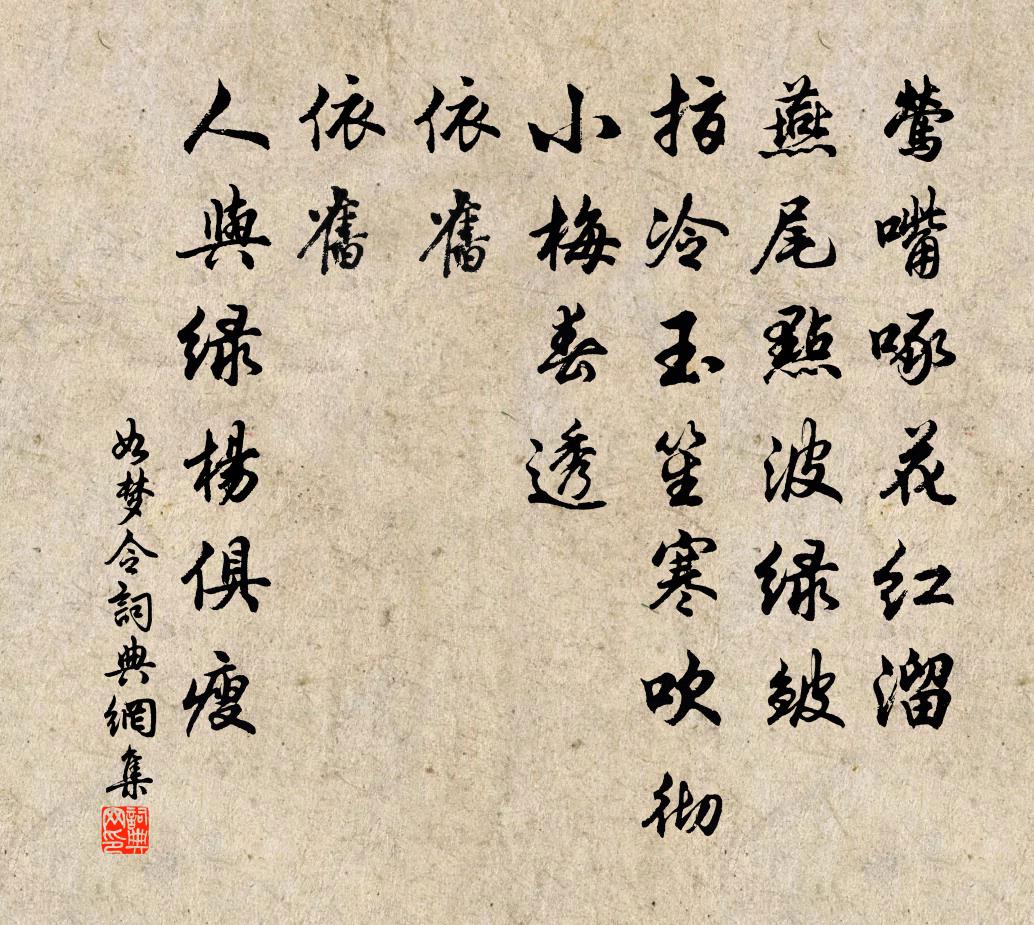 鶯嘴啄花紅溜
燕尾點波緑皺
指冷玉笙寒
吹彻
小梅春透
依舊
依舊
人與緑楊俱瘦
如梦令詞典網集
詞典网印